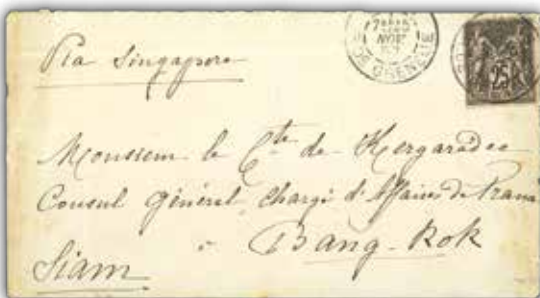 Via Singapore
NOV
DE GRENELLE
25
Monsieur le Cte de Kergaradec
Consul Général, Chargé d'Affaires de France
à Bang-Kok
Siam